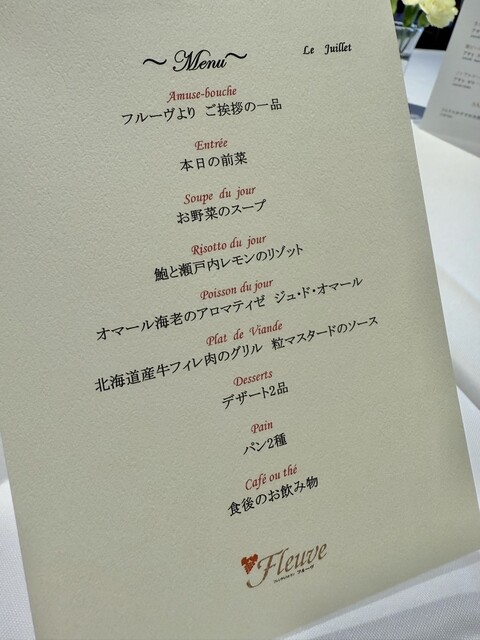 ～ Menu～
Le Juillet
Amuse-bouche
フルーヴより ご挨拶の一品
Entrée
本日の前菜
Soupe du jour
お野菜のスープ
Risotto du jour
鮑と瀬戸内レモンのリゾット
Poisson du jour
オマール海老のアロマティゼ ジュ・ド・オマール
Plat de Viande
北海道産牛フィレ肉のグリル 粒マスタードのソース
Desserts
デザート2品
Pain
パン2種
Café ou thé
食後のお飲み物
Fleuve
フルーヴ